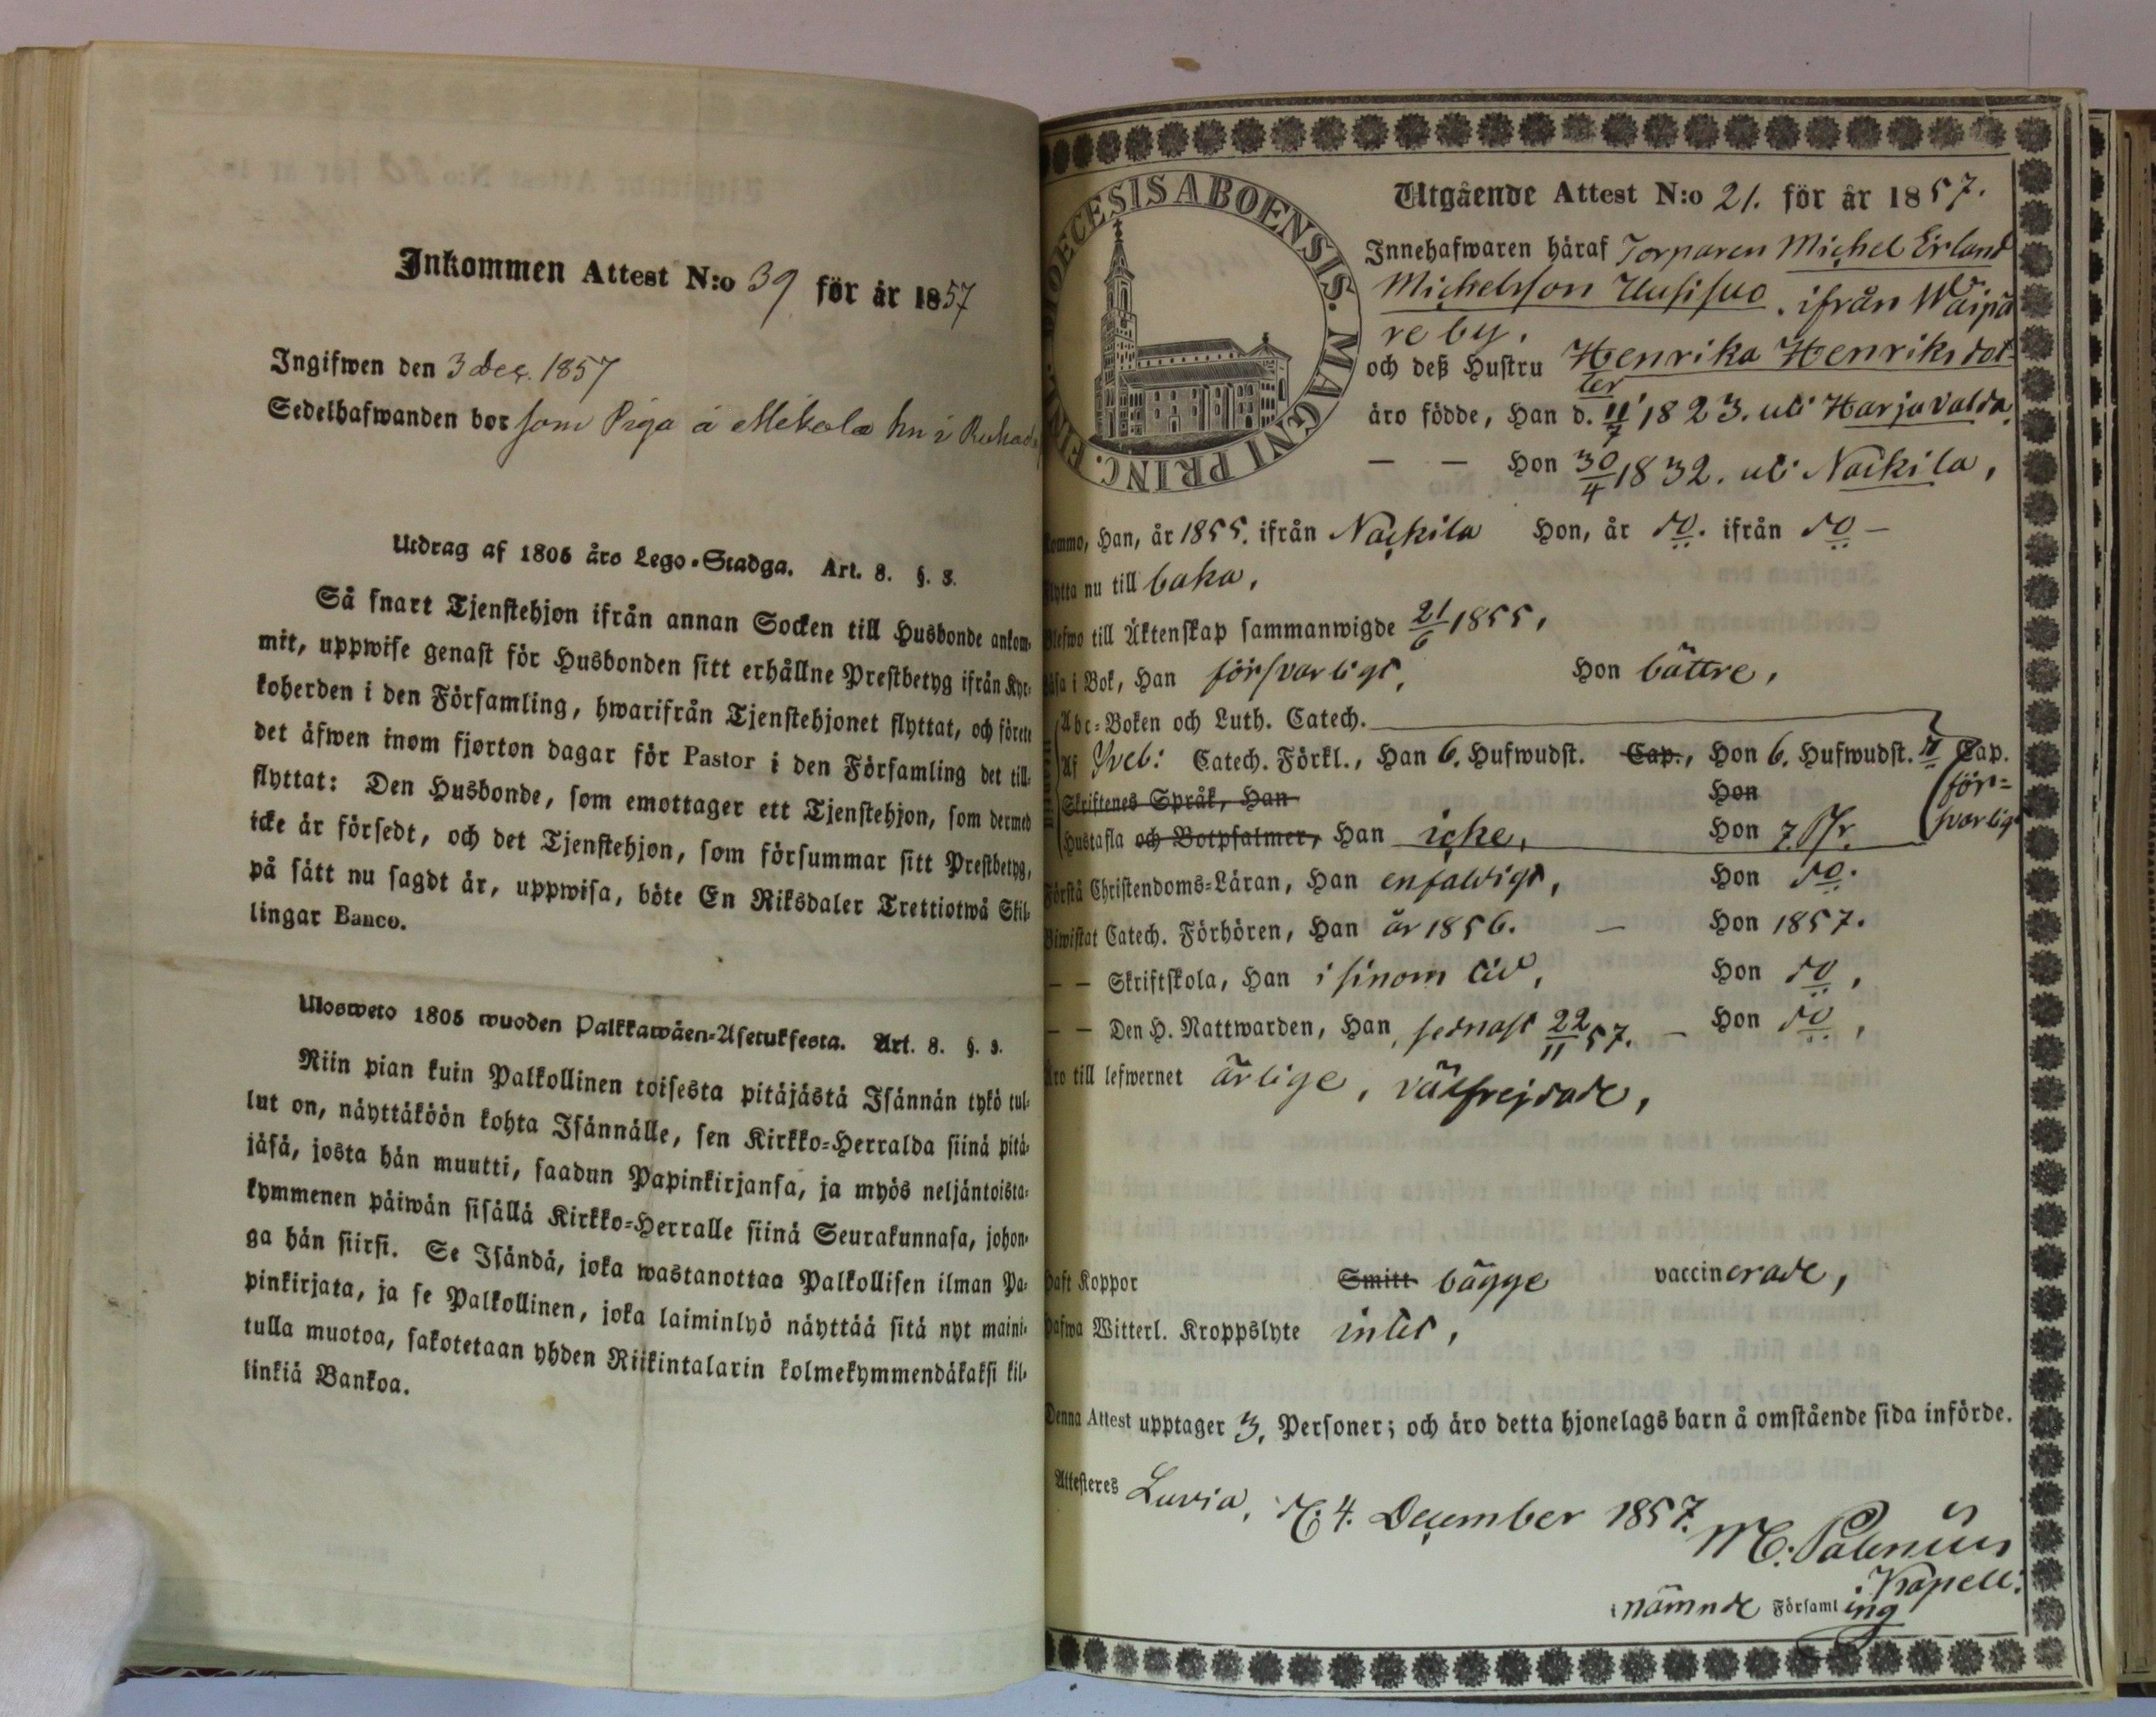 Inkommen Attest N:o 39 för år 1857
Ingifwen den 3 Dec. 1857
Sedelhafwanden bor som Piga å Mikola hn i
Utdrag af 1805 års Lego-Stadga. Art. 8. §. 3.
Så snart Tjenstehjon ifrån annan Socken till Husbonde ankom-
mit, uppwise genast för Husbonden sitt erhållne Prestbetyg ifrån Kyr-
koherden i den Församling, hwarifrån Tjenstehjonet flyttat, och förete
det äfwen inom fjorton dagar för Pastor i den Församling det till-
flyttat: Den Husbonde, som emottager ett Tjenstehjon, som dermed
icke är försedt, och det Tjenstehjon, som försummar sitt Prestbetyg,
på sätt nu sagdt är, uppwisa, böte En Riksdaler Trettiotwå Skil-
lingar Banco.
Ulosweto 1805 wuoden Palkkawäen-Asetuksesta. Art. 8. §. 3.
Niin pian kuin Palkollinen toisesta pitäjästä Isännän tykö tul-
lut on, näyttäköön kohta Isännälle, sen Kirkko-Herralda siinä pitä-
jäsä, josta hän muutti, saadun Papinkirjansa, ja myös neljäntoista-
kymmenen päiwän sisällä Kirkko-Herralle siinä Seurakunnasa, johon-
ga hän siirsi. Se Isändä, joka wastanottaa Palkollisen ilman Pa-
pinkirjata, ja se Palkollinen, joka laiminlyö näyttää sitä nyt maini-
tulla muotoa, sakotetaan yhden Riikintalarin kolmekymmendäkaksi kil-
linkiä Bankoa.
DIOECESIS ABOENSIS. MAGNI PRINC. FINL.
Utgående Attest N:o 21. för år 1857.
Innehafwaren häraf Torparen Michel Erland
Michelsson Uusisuo, ifrån Waipä
re by.
och deß Hustru Henrika Henriksdot-
ter
äro födde, Han d. 11/7 1823. uti Harjavalda,
— — Hon 30/4 1832. uti Nackila,
Kommo, Han, år 1855. ifrån Nackila Hon, år do. ifrån do —
Flytta nu till baka,
Blefwo till Äktenskap sammanwigde 21/6 1855,
Läsa i Bok, Han försvarligt, Hon bättre,
Abc-Boken och Luth. Catech.
Af Sveb: Catech. Förkl., Han 6. Hufwudst. Cap., Hon 6. Hufwudst. Cap.
Skriftenes Språk, Han Hon för-
Hustafla och Botpsalmer, Han icke, Hon svarligt
Förstå Christendoms-Läran, Han enfaldigt, Hon do.
Biwistat Catech. Förhören, Han år 1856. — Hon 1857.
— — Skriftskola, Han i sinom tid, Hon do,
— — Den H. Nattwarden, Han, sednast 22/11 57. — Hon do,
Äro till lefwernet ärlige, välfrejdade,
Haft Koppor Smitt bägge vaccinerade,
Hafwa Witterl. Kroppslyte intet,
Denna Attest upptager 3, Personer; och äro detta hjonelags barn å omstående sida införde.
Attesteres Luvia, d. 4. December 1857.
M. Palenius
Kapell:
i nämnde Församling